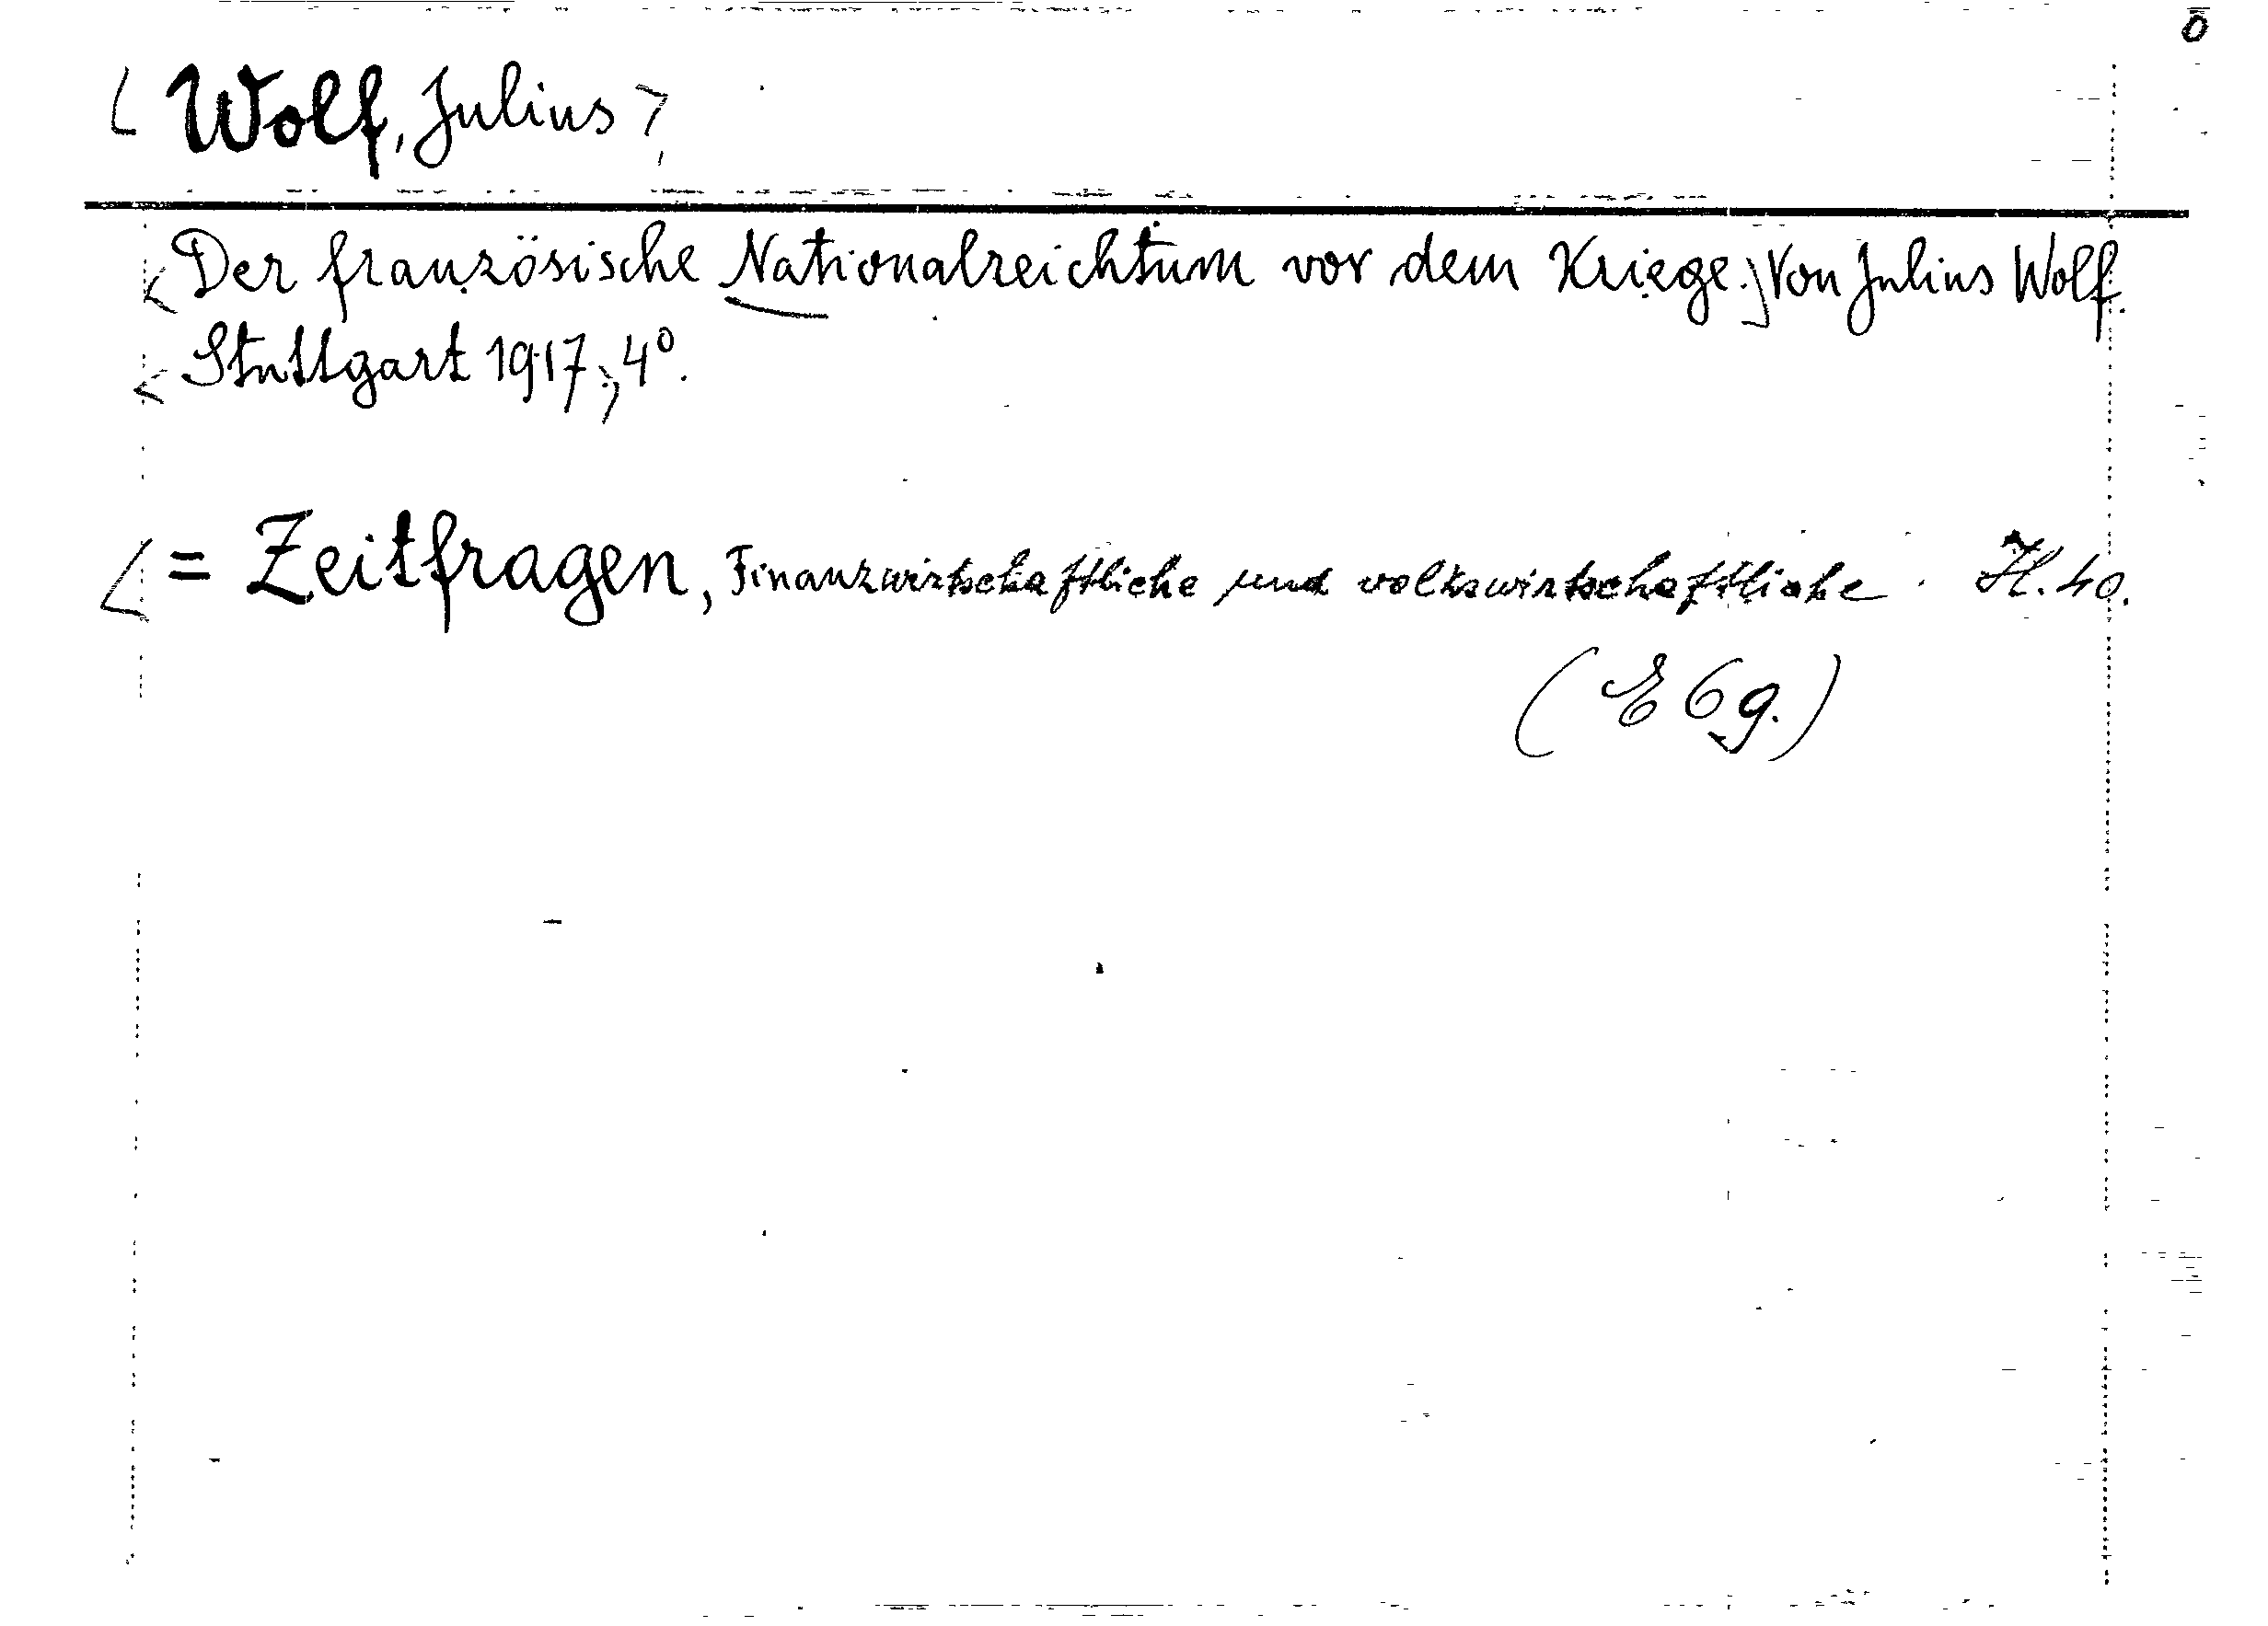 o
< Wolf, Julius >
< Der französische Nationalreichtum vor dem Kriege.> Von Julius Wolf.
< Stuttgart 1917.> 4°.
< = Zeitfragen, Finanzwirtschaftliche und volkswirtschaftliche. H. 40.
(E 6g.)